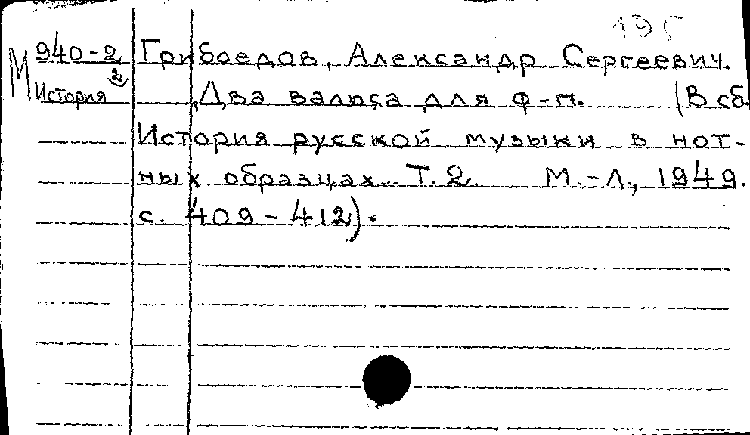 195
М 940-2 Грибоедов, Александр Сергеевич.
2
История Два вальса для ф-п. (В сб.
История русской музыки в нот-
ных образцах. Т. 2 М.-Л., 1949.
с. 409-412).